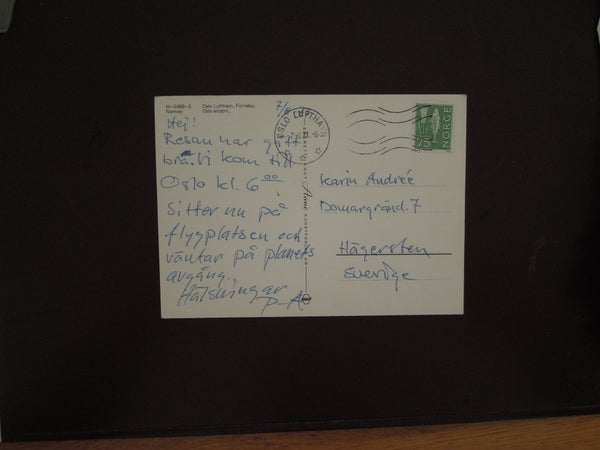 M-5400-2 Oslo Lufthavn, Fornebu.
Norway Oslo airport.
Hej!
Resan har gått
bra. Vi kom till
Oslo kl. 6 00
Sitter nu på
flygplatsen och
väntar på planets
avgång.
Hälsningar
P-A
OSLO LUFTHAVN
75
NORGE
Karin Andreé
Domargränd. 7
Hägersten
Sverige